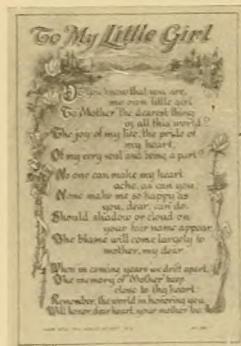 To My Little Girl
Do you know that you are,
my own little girl
To Mother the dearest thing
in all this world?
The joy of my life, the pride of
my heart,
Of my very soul and being a part?
No one can make my heart
ache, as can you,
None make me so happy as
you, dear, can do.
Should shadow or cloud on
your fair name appear
The blame will come largely to
mother, my dear.
When in coming years we drift apart,
The memory of Mother keep
close to thy heart.
Remember, the world in honoring you
Will honor, dear heart, your mother too.